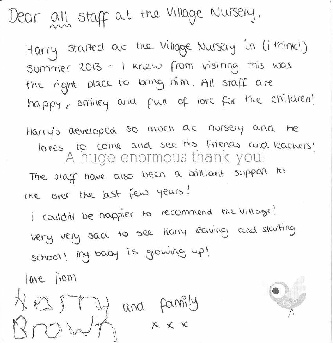 Dear all staff at the Village Nursery,
Harry started at the Village Nursery in (i think!)
Summer 2013 - I knew from visiting this was
the right place to bring him. All staff are
happy, smiley and full of love for the children!
Harry's developed so much at nursery and he
loves to come and see his friends and teachers!
A huge enormous thank you.
The staff have also been a brilliant support to
me over the last few years!
I couldn't be happier to recommend the Village!
Very very sad to see Harry leaving and starting
school! My baby is growing up!
Love from
Harry and family
Brown x x x